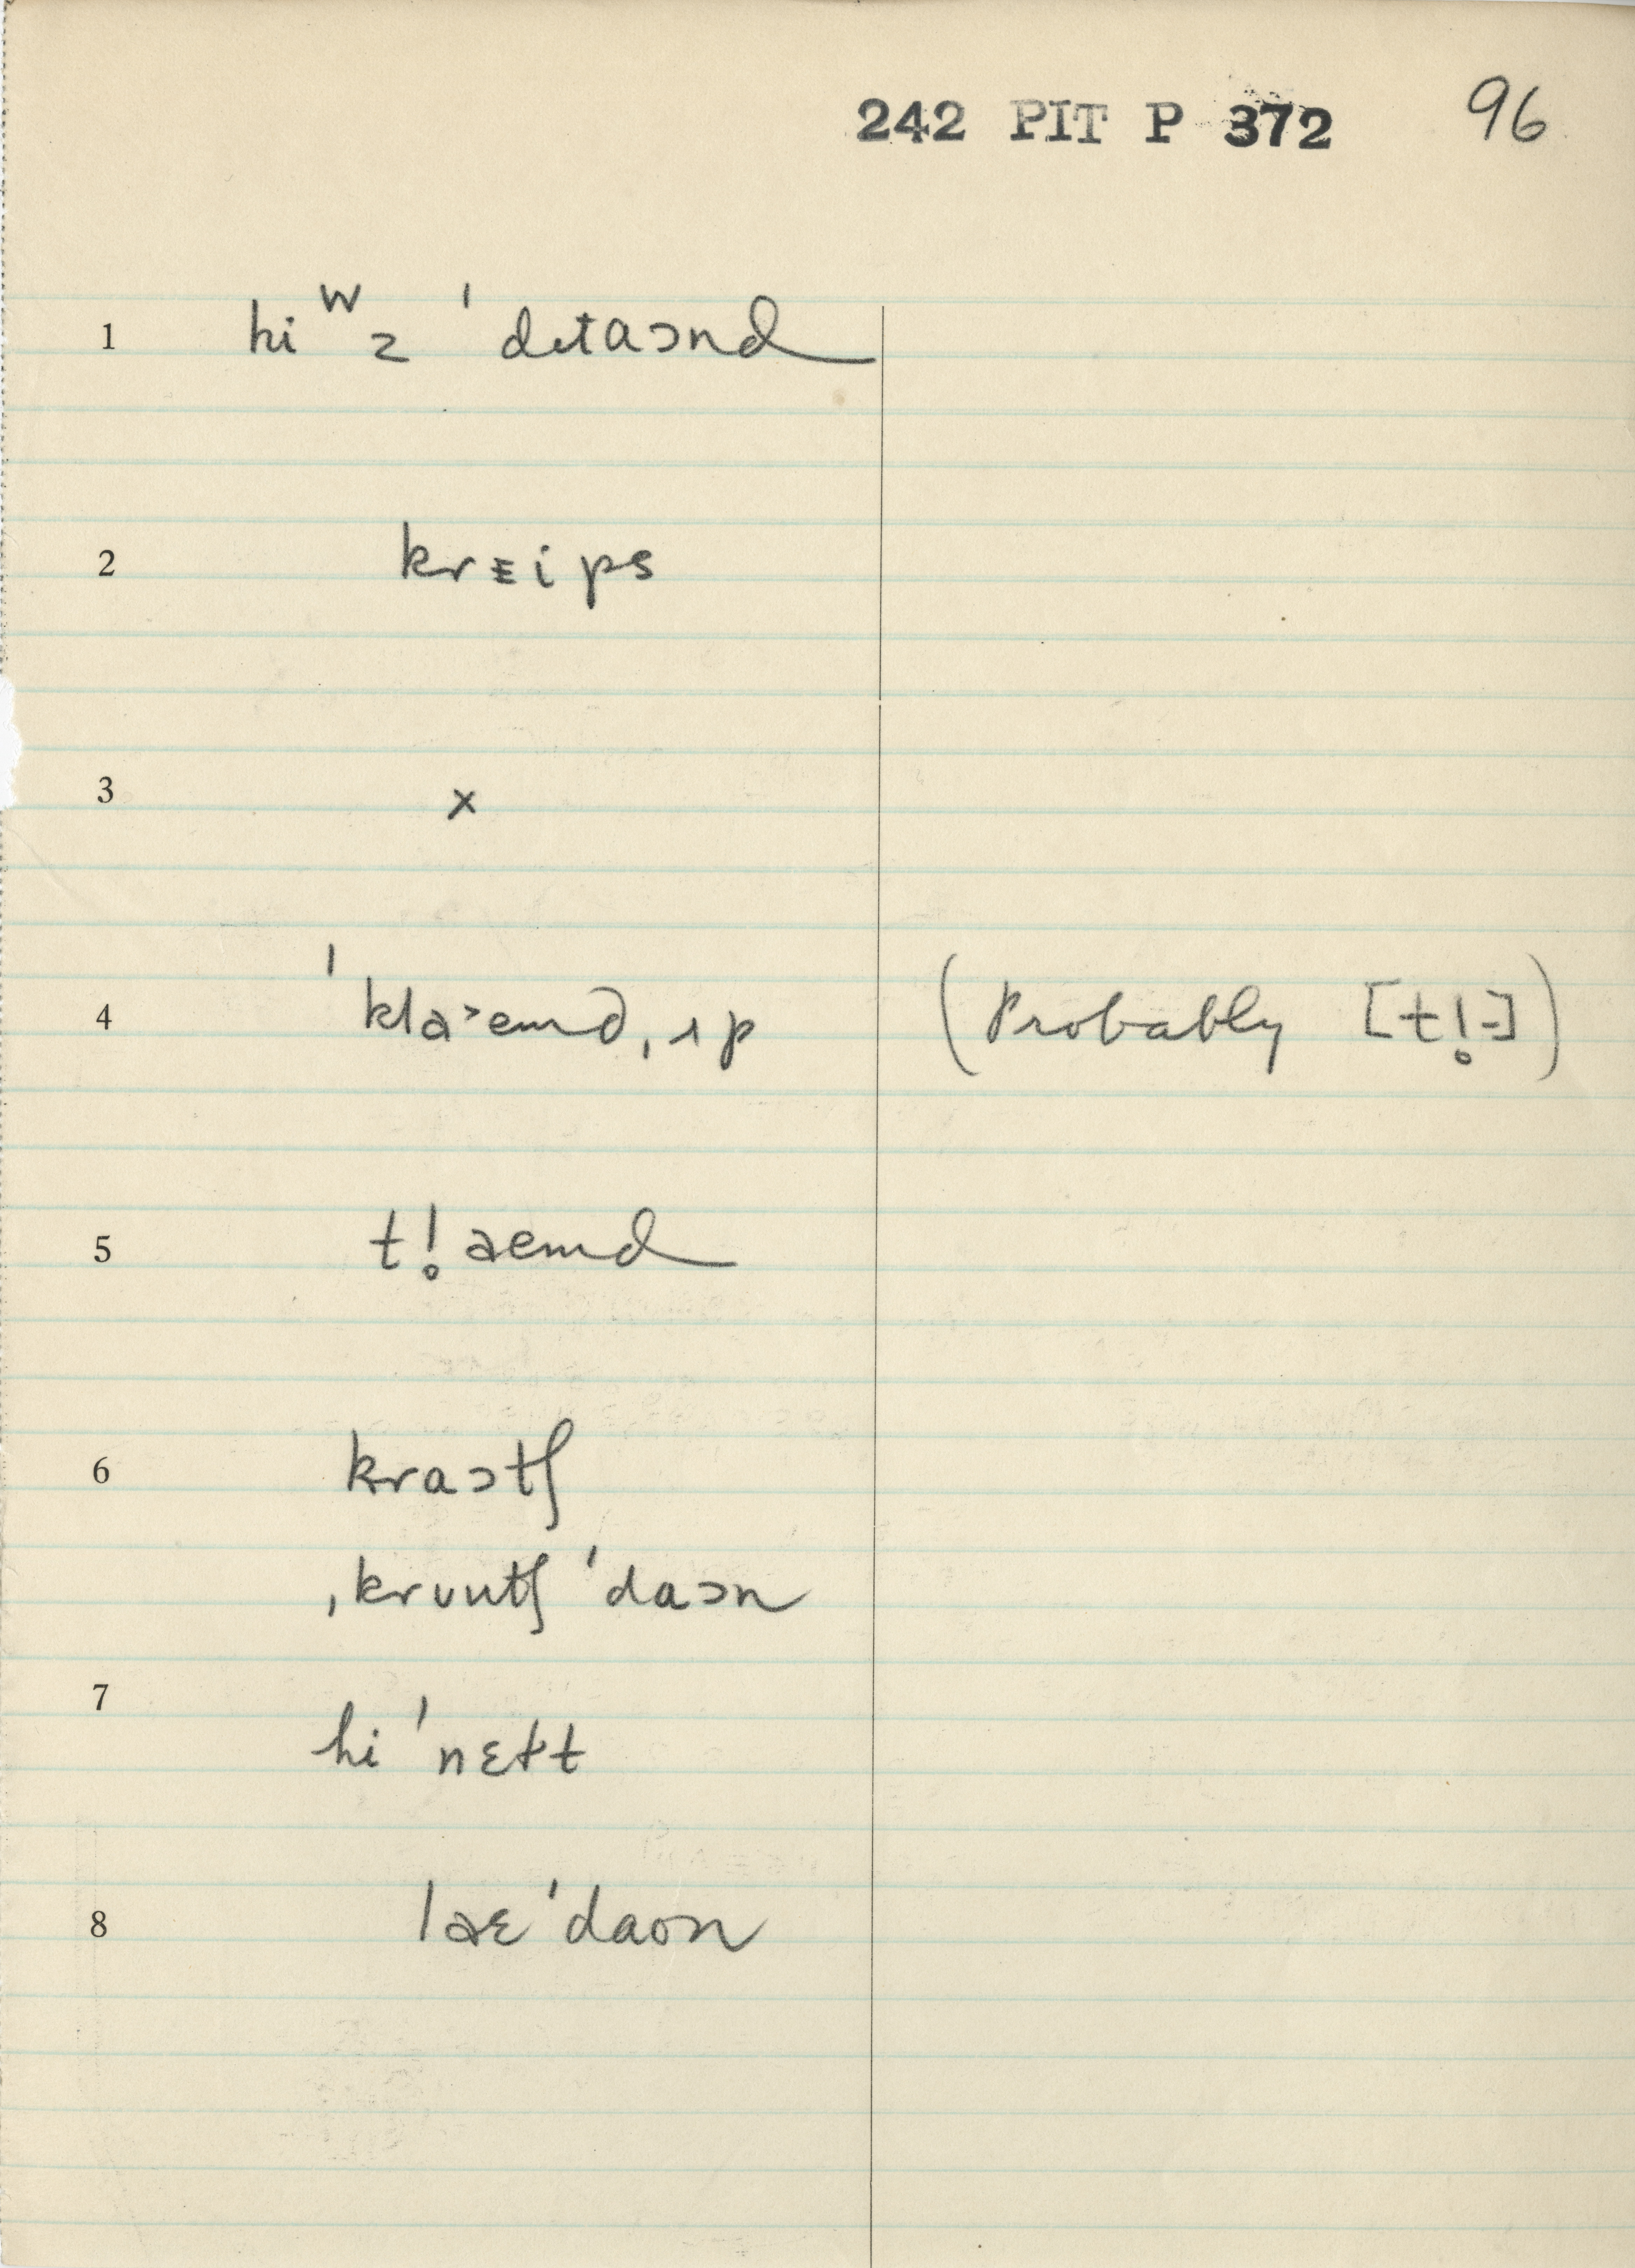 242 PIT P 372 96
1 hiʷz ˈdɪtaɔnd
2 krᴇips
3 x
4 ˈkla˃emd,ɪp (Probably [t!̥-])
5 t!̥aemd
6 kraɔtʃ
ˌkrʊutʃ ˈdaɔn
7 hi ˈnɛɫt
8 laɛˈdaon